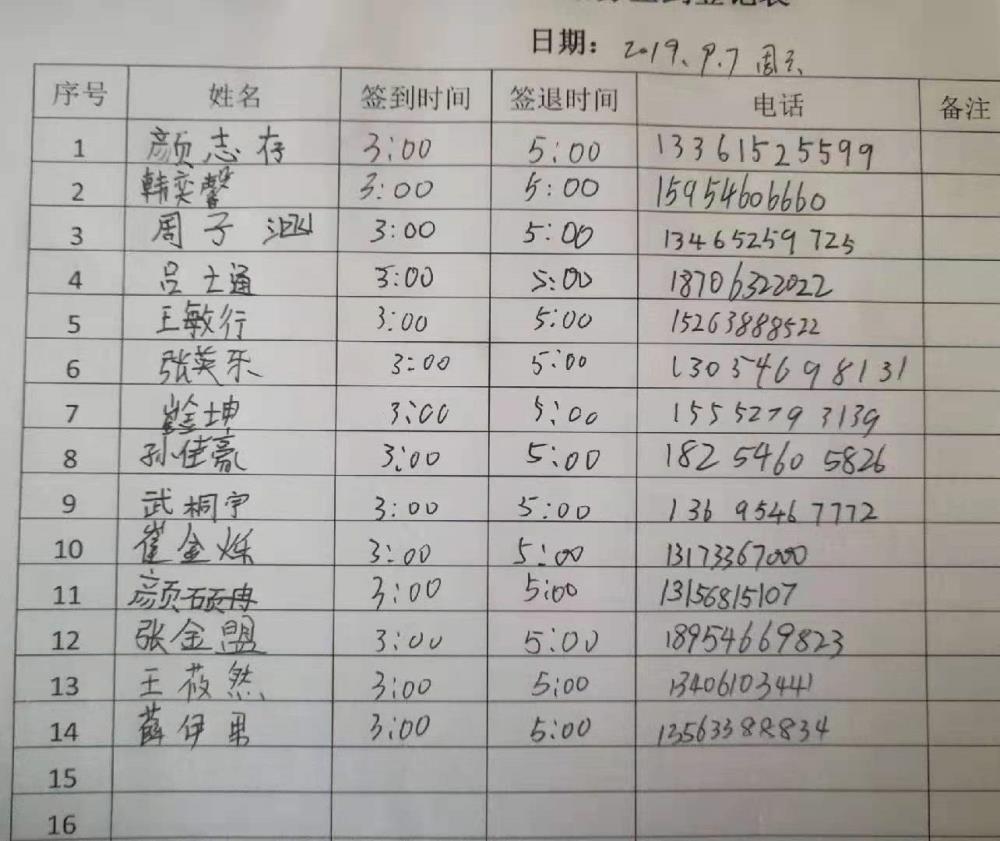 登记表
日期: 2019.9.7 周六
序号 姓名 签到时间 签退时间 电话 备注
1 颜志存 3:00 5:00 13361525599
2 韩奕馨 3:00 5:00 15954606660
3 周子泇 3:00 5:00 13465259725
4 吕士通 3:00 5:00 18706322022
5 王敏行 3:00 5:00 15263888522
6 张英乐 3:00 5:00 13054698131
7 坤 3:00 5:00 15552793139
8 孙佳豪 3:00 5:00 18254605826
9 武桐宇 3:00 5:00 13695467772
10 崔金烁 3:00 5:00 13173367000
11 颜硕冉 3:00 5:00 13156815107
12 张金盟 3:00 5:00 18954669823
13 王莜然 3:00 5:00 13406103441
14 薛伊男 3:00 5:00 13563388834
15
16